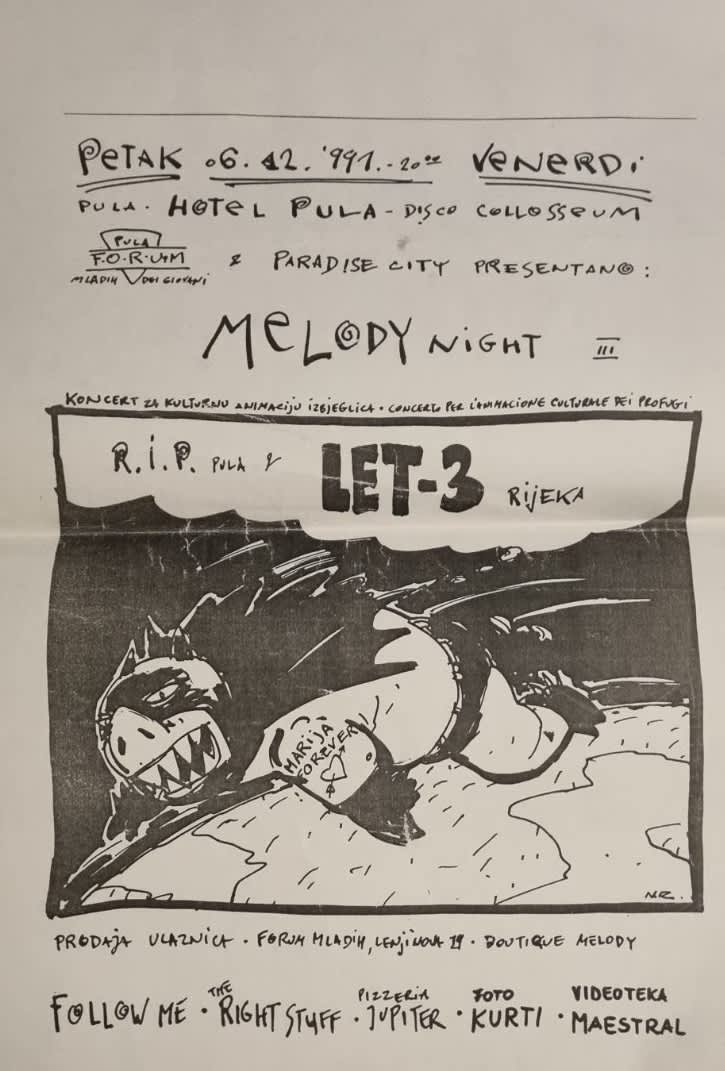 PETAK 06. 12. '991. - 20⁰⁰ VENERDi
PULA. HOTEL PULA - DISCO COLLOSSEUM
PULA
F.O.R.U.M
MLADIH DEI GIOVANI
& PARADISE CITY PRESENTANO:
MELODY NIGHT III
KONCERT ZA KULTURNU ANIMACIJU IZBJEGLICA • CONCERTO PER L'ANIMACIONE CULTURALE DEI PROFUGI
R.I.P. PULA & LET-3 RIJEKA
MARIJA
FOREVER
NR.
PRODAJA ULAZNICA • FORUM MLADIH, LENJINOVA 19 • BOUTIQUE MELODY
FOLLOW ME • THE RIGHT STUFF • PIZZERIA JUPITER • FOTO KURTI • VIDEOTEKA MAESTRAL